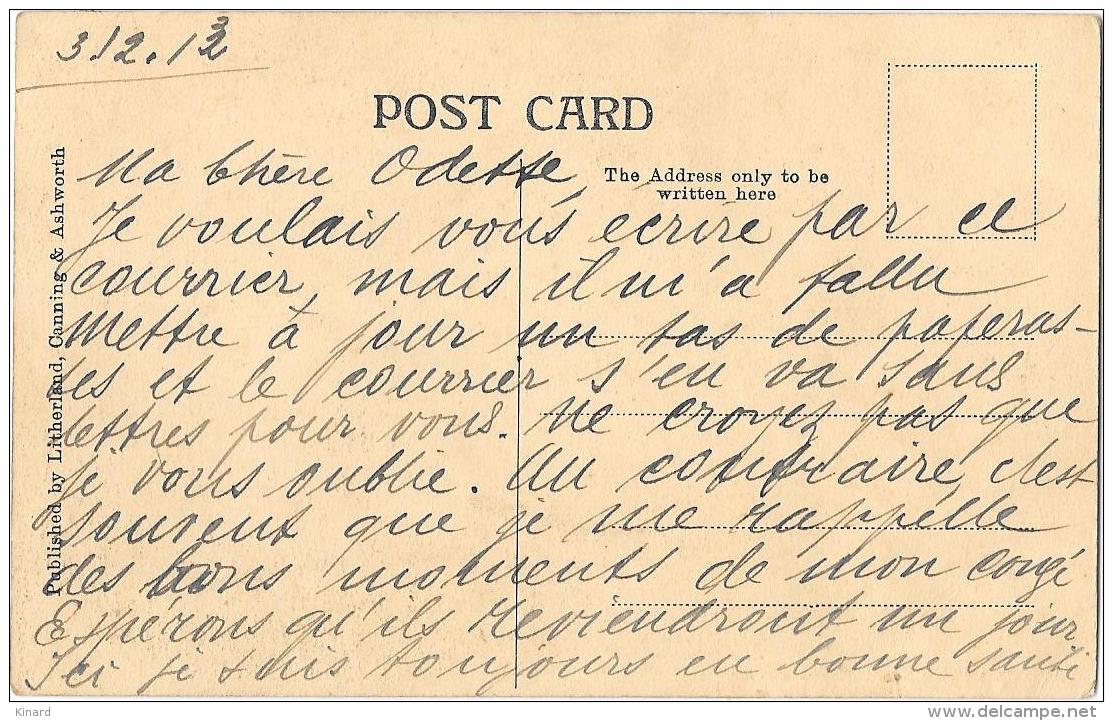 3.12.13
POST CARD
Ma Chère Odette,
The Address only to be
written here
Je voulais vous écrire par ce
courrier, mais il m'a fallu
mettre à jour un tas de paperas-
ses et le courrier s'en va sans
lettres pour vous. Ne croyez pas que
je vous oublie. Au contraire, c'est
souvent que je me rappelle
des bons moments de mon congé
Espérons qu'ils reviendront un jour
Ici je suis toujours en bonne santé
Published by Litherland, Canning & Ashworth
Kinard
delcampe.net